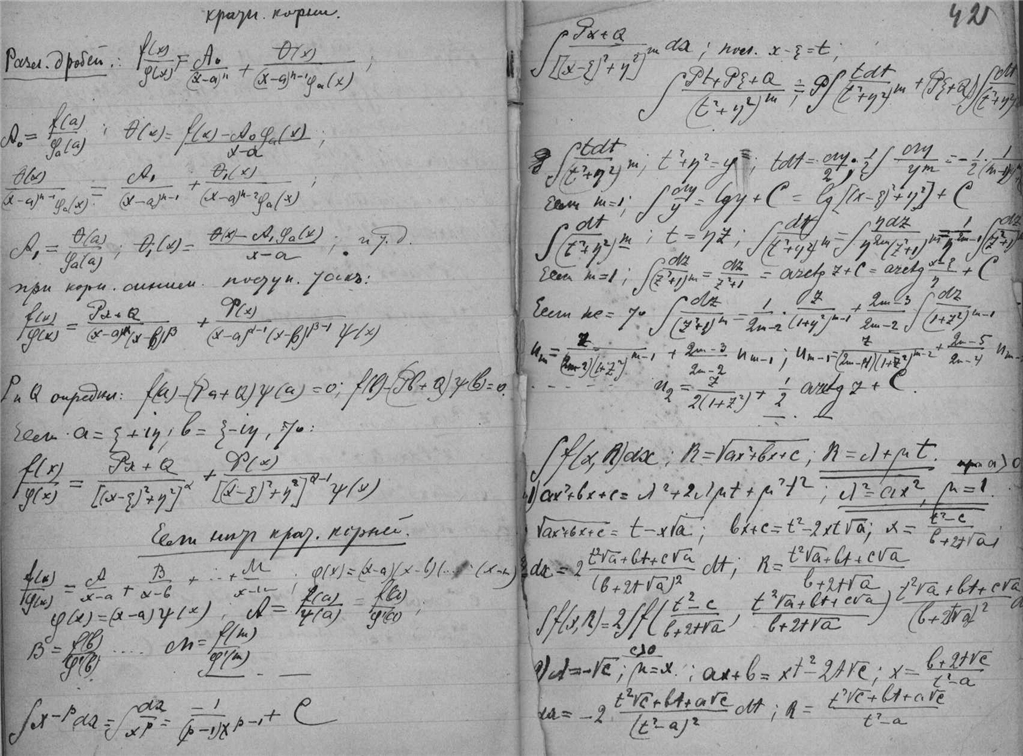 крат. корни.
Разл. дробей: f(x)/φ(x) = A₀/(x-a)ⁿ + θ(x)/(x-a)ⁿ⁻¹φₐ(x) ;
A₀ = f(a)/φₐ(a) ; θ(x) = f(x)-A₀φₐ(x)/x-a ;
θ(x)/(x-a)ⁿ⁻¹φₐ(x) = A₁/(x-a)ⁿ⁻¹ + θ₁(x)/(x-a)ⁿ⁻²φₐ(x) ;
A₁ = θ(a)/φₐ(a) ; θ₁(x) = θ(x)-A₁φₐ(x)/x-a ; и т.д.
при корн. мним.
f(x)/φ(x) = Px+Q/(x-a)^α(x-b)^β + P(x)/(x-a)^α-1(x-b)^β-1 ψ(x)
P и Q определ: f(a)-(Pa+Q)ψ(a)=0; f(b)-(Pb+Q)ψ(b)=0.
Если a=ξ+iη; b=ξ-iη, то:
f(x)/φ(x) = Px+Q/[(x-ξ)²+η²]^α + P(x)/[(x-ξ)²+η²]^α-1 ψ(x)
Если нет крат. корней.
f(x)/φ(x) = A/x-a + B/x-b + ..+ M/x-m ; φ(x)=(x-a)(x-b)(....(x-m)
φ(x)=(x-a)ψ(x), A = f(a)/ψ(a) = f(a)/φ'(a)
B = f(b)/φ'(b) .... M = f(m)/φ'(m)
∫x^-p dx = ∫dx/x^p = -1/(p-1)x^p-1 + C
42
∫Px+Q/[(x-ξ)²+η²]^m dx ; x-ξ=t;
∫Pt+Pξ+Q/(t²+η²)^m = P∫tdt/(t²+η²)^m + (Pξ+Q)∫dt/(t²+η²)
∫tdt/(t²+η²)^m ; t²+η²=y ; tdt=dy/2 · 1/2∫dy/y^m = -1/2·1/(m-1)
Если m=1; ∫dy/y = lgy+C = lg[(x-ξ)²+η²]+C
∫dt/(t²+η²)^m ; t=ηz ; ∫dt/(t²+η²)^m = ∫ηdz/η^2m(z²+1)^m = 1/η^2m-1 ∫dz/(z²+1)
Если m=1; ∫dz/(z²+1)^m = dz/z²+1 = arctg z+C = arctg x-ξ/η + C
Если не= то ∫dz/(z²+1)^m = 1/2m-2 · z/(1+z²)^m-1 + 2m-3/2m-2 ∫dz/(1+z²)^m-1
u_m = z/(2m-2)(1+z²)^m-1 + 2m-3/2m-2 u_m-1 ; u_m-1 = z/(2m-4)(1+z²)^m-2 + 2m-5/2m-4 u_m-
u₂ = z/2(1+z²) + 1/2 arctg z + C
∫f(x,R)dx ; R=√ax²+bx+c ; R=λ+μt. при a>0
1) ax²+bx+c=λ²+2λμt+μ²t² ; λ²=ax², μ=1.
√ax²+bx+c = t-x√a ; bx+c=t²-2xt√a ; x = t²-c/b+2t√a ;
dx = 2 t²√a+bt+c√a/(b+2t√a)² dt ; R = t²√a+bt+c√a/b+2t√a
∫f(x,R)=2∫f(t²-c/b+2t√a, t²√a+bt+c√a/b+2t√a) t²√a+bt+c√a/(b+2t√a)² d
2) λ=-√c ; c>0 μ=x. ; ax+b=xt²-2t√c ; x = b+2t√c/t²-a
dx = -2 t²√c+bt+a√c/(t²-a)² dt ; R = t²√c+bt+a√c/t²-a